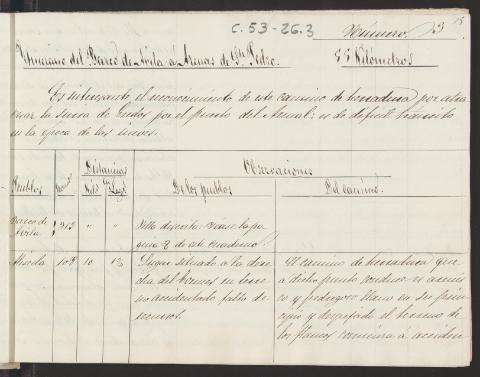 C.53-26.3
Número 13
Itinerario del Barco de Avila á Arenas de Sn Pedro.
55 Kilómetros
Es interesante el reconocimiento de este camino de herradura por atra-
vesar la sierra de Gredos por el puerto del Arenal: es de dificil tránsito
en la época de las nieves.
Distancias
Observaciones
Pueblos
De los pueblos
Del camino.
Barco de
Avila
313
" "
Villa descrita: vease la pa-
gina 2 de este cuaderno.
109 10
Lugar situado a la dere-
cha del Tormes en terre-
no accidentado falto de
recursos.
El camino de herradura que
a dicho punto conduce es arenis-
co y pedregoso llano en su prin-
cipio y despejado el terreno de
los flancos comienza á acciden-